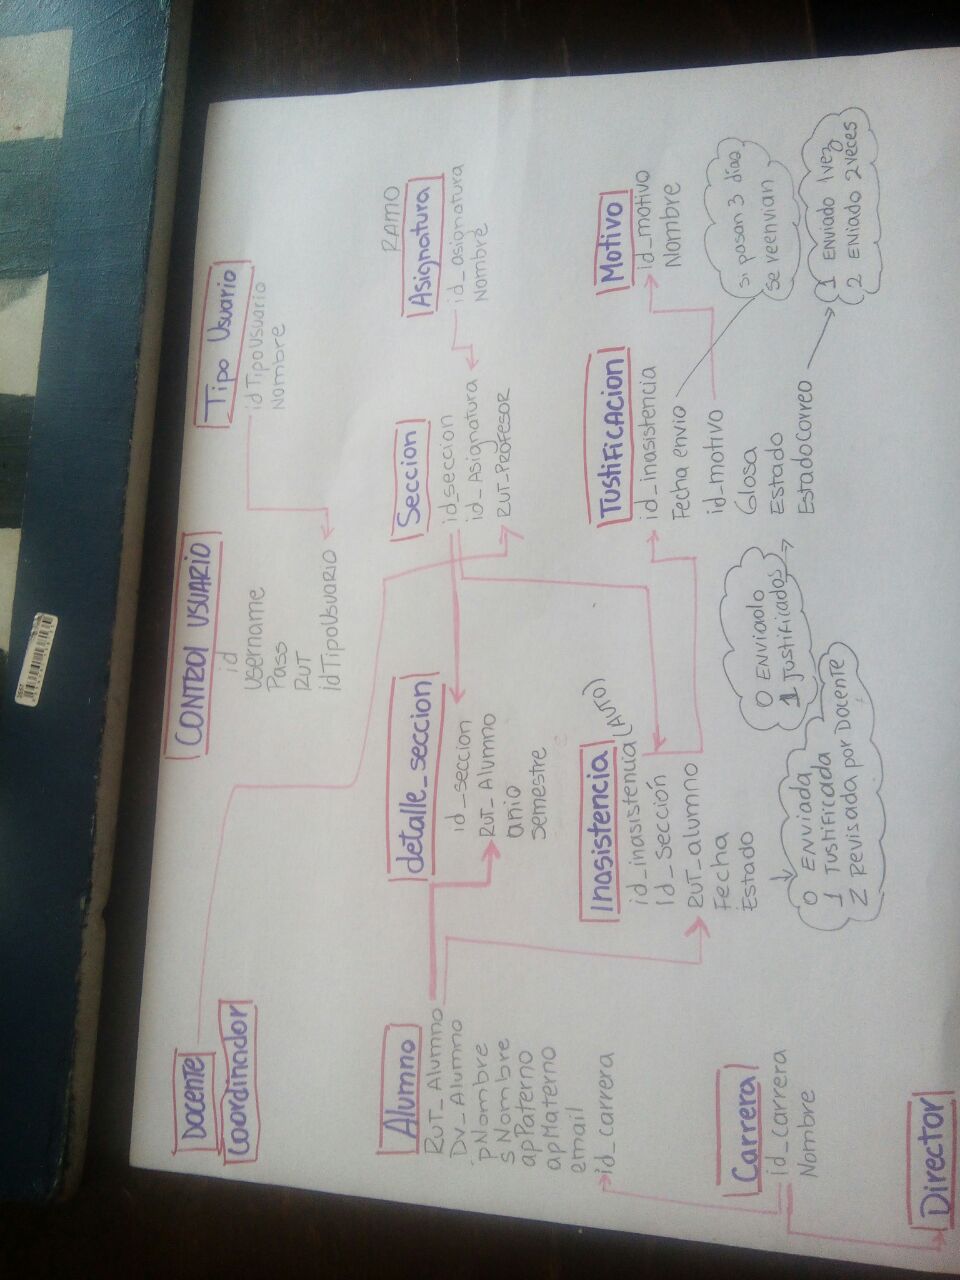 Docente
Coordinador
CONTROL USUARIO
id
username
Pass
RUT
idTipoUsuario
Tipo Usuario
idTipoUsuario
Nombre
Alumno
RUT_Alumno
Dv_Alumno
pNombre
sNombre
apPaterno
apMaterno
email
id_carrera
detalle_seccion
id_seccion
RUT_Alumno
anio
semestre
Seccion
id_seccion
id_Asignatura
RUT_PROFESOR
RAMO
Asignatura
id_asignatura
Nombre
Inasistencia
id_inasistencia (AUTO)
Id_Sección
RUT_alumno
Fecha
Estado
0 ENVIADA
1 Justificada
2 Revisada por Docente
Justificacion
id_inasistencia
Fecha envio
id_motivo
Glosa
Estado
EstadoCorreo
0 Enviado
1 Justificados
Motivo
id_motivo
Nombre
si pasan 3 días
se reenvian
1 ENViado 1 vez
2 ENiado 2 veces
Carrera
id_carrera
Nombre
Director